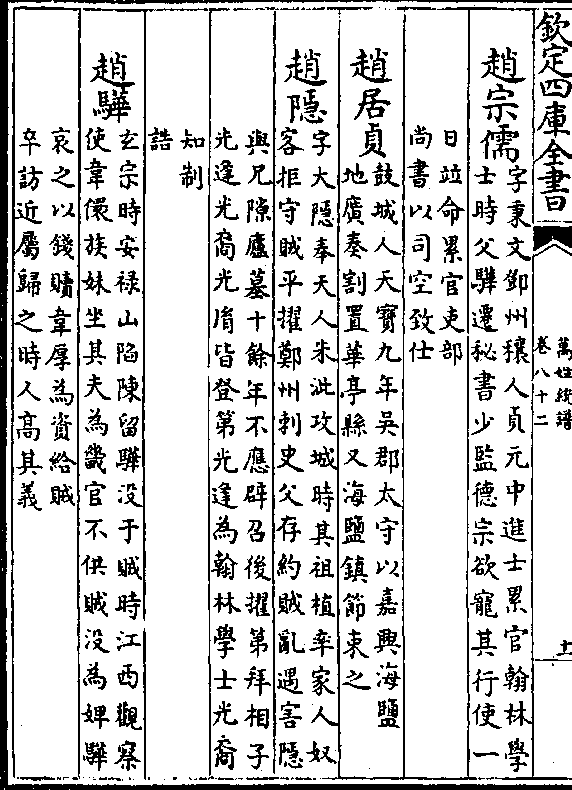 欽定四庫全書
萬姓統譜
卷八十二
十一
趙宗儒字秉文鄧州穰人貞元中進士累官翰林學
士時父驊遷秘書少監德宗欲寵其行使一
日竝命累官吏部
尚書以司空致仕
趙居貞鼓城人天寶九年吳郡太守以嘉興海鹽
地廣奏割置華亭縣又海鹽鎮節束之
趙隱字大隱奉天人朱泚攻城時其祖植率家人奴
客拒守賊平擢鄭州刺史父存約賊亂遇害隱
與兄隙廬墓十餘年不應辟召後擢第拜相子
光逢光裔光胤皆登第光逢為翰林學士光裔
知制
誥
趙驊玄宗時安祿山陷陳留驊没于賊時江西觀察
使韋儇族妹坐其夫為畿官不供賊没為婢驊
哀之以錢贖韋厚為資給賊
卒訪近屬歸之時人高其義